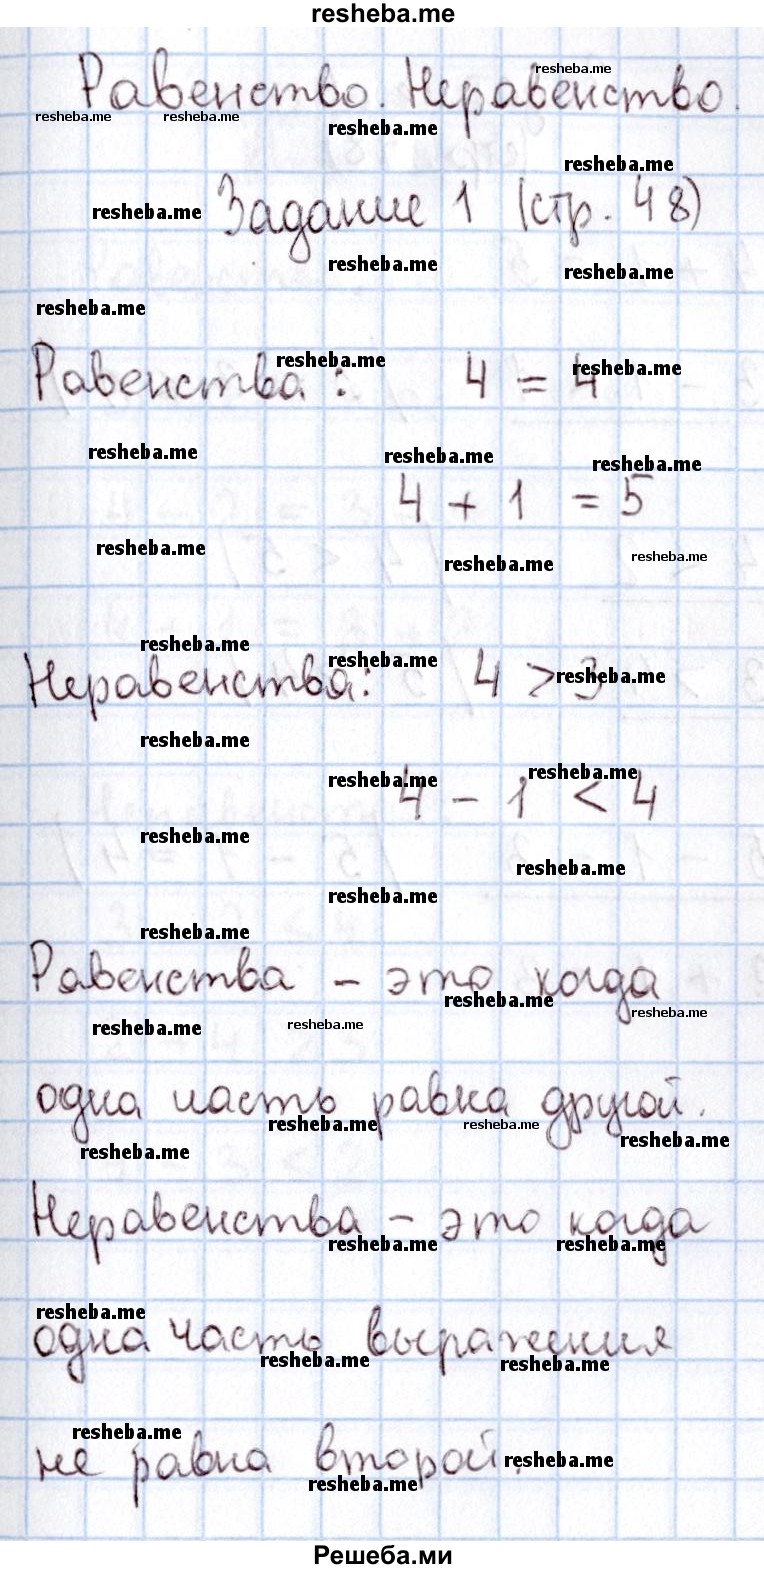 resheba.me
Равенство. Неравенство.
Задание 1 (стр. 48)
Равенства: 4 = 4
4 + 1 = 5
Неравенства: 4 > 3
4 - 1 < 4
Равенства - это когда
одна часть равна другой.
Неравенства - это когда
одна часть выражения
не равна второй.
Решеба.ми